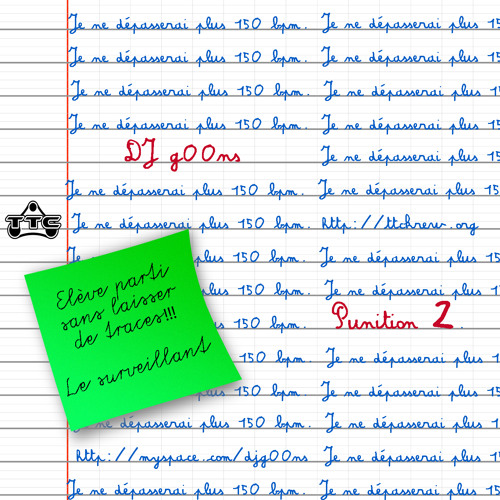 Je ne dépasserai plus 150 bpm. Je ne dépasserai plus 15
Je ne dépasserai plus 150 bpm. Je ne dépasserai plus 15
Je ne dépasserai plus 150 bpm. Je ne dépasserai plus 15
Je ne dépasserai plus 150 bpm. Je ne dépasserai plus 15
DJ g00ns Je ne dépasserai plus 15
Je ne dépasserai plus 150 bpm. Je ne dépasserai plus 15
TTC Je ne dépasserai plus 150 bpm. http://ttckrew.org
150 bpm. Je ne dépasserai plus 15
150 bpm. Je ne dépasserai plus
150 bpm. Punition 2
150 bpm. Je ne dépasserai plus 1
150 bpm. Je ne dépasserai plus 1
dépasserai plus 150 bpm. Je ne dépasserai plus 15
http://myspace.com/djg00ns Je ne dépasserai plus 15
Je ne dépasserai plus 150 bpm. Je ne dépasserai plus 15
Elève parti
sans laisser
de traces!!!
Le surveillant